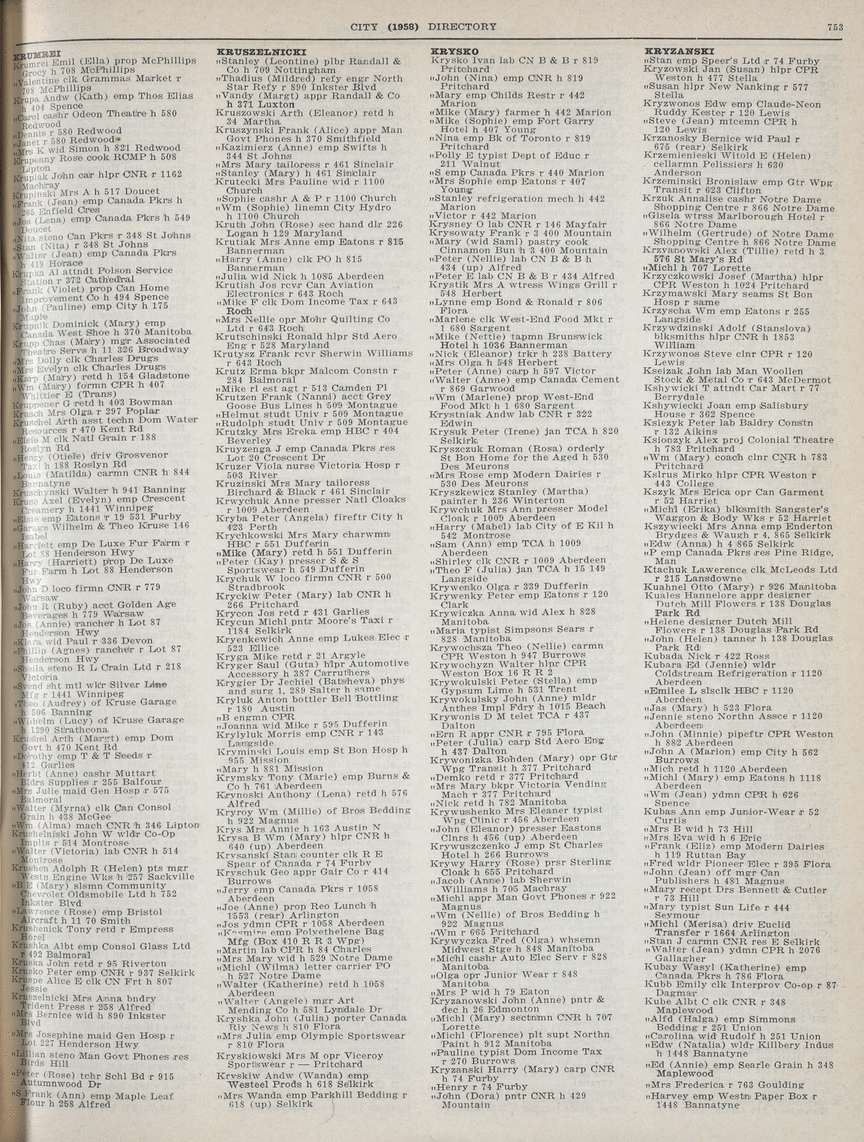 CITY (1958) DIRECTORY
753
KRUMREI
Krumrei Emil (Ella) prop McPhillips
Grocy h 708 McPhillips
„Valentine clk Grammas Market r
708 McPhillips
Krupa Andw (Kath) emp Thos Elias
h 404 Spence
„Carol cashr Odeon Theatre h 580
Redwood
„Dennis r 580 Redwood
„Janet r 580 Redwood
„Mrs K wid Simon h 821 Redwood
Krupenny Rose cook RCMP h 508
Lipton
Krupiak John car hlpr CNR r 1162
Machray
Krupinski Mrs A h 517 Doucet
„Frank (Jean) emp Canada Pkrs h
265 Enfield Cres
„Jos (Lena) emp Canada Pkrs h 549
Doucet
„Nita steno Can Pkrs r 348 St Johns
„Stan (Nita) r 348 St Johns
„Walter (Jean) emp Canada Pkrs
h 419 Horace
Krupka Al attndt Polson Service
Station r 372 Cathedral
„Frank (Violet) prop Can Home
Improvement Co h 494 Spence
„John (Pauline) emp City h 175
Maple
Krupnik Dominick (Mary) emp
Canada West Shoe h 370 Manitoba
Krupp Chas (Mary) mgr Associated
Theatre Servs h 11 326 Broadway
„Mrs Dolly clk Charles Drugs
„Mrs Evelyn clk Charles Drugs
„Karp (Mary) retd h 154 Gladstone
„Wm (Mary) formn CPR h 407
Whittier E (Trans)
Kruppener G retd h 403 Bowman
Krusch Mrs Olga r 297 Poplar
Kruschel Arth asst techn Dom Water
Resources r 470 Kent Rd
„Elsie M clk Natl Grain r 188
Roslyn Rd
„Henry (Otiele) driv Grosvenor
Taxi h 188 Roslyn Rd
„Louis (Matilda) carmn CNR h 844
Bannatyne
Kruschynski Walter h 941 Banning
Kruse Axel (Evelyn) emp Crescent
Creamery h 1441 Winnipeg
„Elsie emp Eatons r 19 531 Furby
„Garage Wilhelm & Theo Kruse 146
Isabel
„Harriett emp De Luxe Fur Farm r
Lot 88 Henderson Hwy
„Harry (Harriett) prop De Luxe
Fur Farm h Lot 88 Henderson
Hwy
„John D loco firmn CNR r 779
Warsaw
„John R (Ruby) acct Golden Age
Beverages h 779 Warsaw
„Jos (Annie) rancher h Lot 87
Henderson Hwy
„Klara wid Paul r 336 Devon
„Phillip (Agnes) rancher r Lot 87
Henderson Hwy
„Sheila steno R L Crain Ltd r 218
Victoria
„Svend sht mtl wkr Silver Line
Mfg r 1441 Winnipeg
„Theo (Audrey) of Kruse Garage
h 506 Banning
„Wilhelm (Lucy) of Kruse Garage
h 1290 Strathcona
Krushel Arth (Margt) emp Dom
Govt h 470 Kent Rd
„Dorothy emp T & T Seeds r
412 Garlies
„Herbt (Anne) cashr Muttart
Bldrs Supplies r 255 Balfour
„Mrs Julie maid Gen Hosp r 575
Balmoral
„Walter (Myrna) clk Can Consol
Grain h 438 McGee
„Wm (Alma) mach CNR h 346 Lipton
Krushelniski John W wldr Co-Op
Implts r 514 Montrose
„Walter (Victoria) lab CNR h 514
Montrose
Krushen Adolph R (Helen) pts mgr
Westn Engine Wks h 257 Sackville
„B E (Mary) slsmn Community
Chevrolet Oldsmobile Ltd h 752
Inkster Blvd
„Lawrence (Rose) emp Bristol
Aircraft h 11 70 Smith
Krushenick Tony retd r Empress
Hotel
Krushka Albt emp Consol Glass Ltd
r 492 Balmoral
Kruska John retd r 95 Riverton
Krusko Peter emp CNR r 937 Selkirk
Kruspe Alice E clk CN Frt h 807
Jessie
Kruszelnicki Mrs Anna bndry
Trident Press r 258 Alfred
„Mrs Bernice wid h 890 Inkster
Blvd
„Mrs Josephine maid Gen Hosp r
Lot 227 Henderson Hwy
„Lillian steno Man Govt Phones res
Birds Hill
„Peter (Rose) tchr Schl Bd r 915
Autumnwood Dr
„S Frank (Ann) emp Maple Leaf
Flour h 258 Alfred
KRUSZELNICKI
„Stanley (Leontine) plbr Randall &
Co h 709 Nottingham
„Thadius (Mildred) refy engr North
Star Refy r 890 Inkster Blvd
„Vandy (Margt) appr Randall & Co
h 371 Luxton
Kruszowski Arth (Eleanor) retd h
34 Martha
Kruszynski Frank (Alice) appr Man
Govt Phones h 370 Smithfield
„Kazimierz (Anne) emp Swifts h
344 St Johns
„Mrs Mary tailoress r 461 Sinclair
„Stanley (Mary) h 461 Sinclair
Krutecki Mrs Pauline wid r 1100
Church
„Sophie cashr A & P r 1100 Church
„Wm (Sophie) linemn City Hydro
h 1100 Church
Kruth John (Rose) sec hand dlr 226
Logan h 129 Maryland
Krutiak Mrs Anne emp Eatons r 815
Bannerman
„Harry (Anne) clk PO h 815
Bannerman
„Julia wid Nick h 1085 Aberdeen
Krutish Jos rcvr Can Aviation
Electronics r 643 Roch
„Mike F clk Dom Income Tax r 643
Roch
„Mrs Nellie opr Mohr Quilting Co
Ltd r 643 Roch
Krutschinski Ronald hlpr Std Aero
Eng r 528 Maryland
Krutysz Frank rcvr Sherwin Williams
r 643 Roch
Krutz Erma bkpr Malcom Constn r
284 Balmoral
„Mike rl est agt r 513 Camden Pl
Krutzen Frank (Nanni) acct Grey
Goose Bus Lines h 509 Montague
„Helmut studt Univ r 509 Montague
„Rudolph studt Univ r 509 Montague
Krutzky Mrs Ereka emp HBC r 404
Beverley
Kruyzenga J emp Canada Pkrs res
Lot 20 Crescent Dr
Kruzer Viola nurse Victoria Hosp r
503 River
Kruzinski Mrs Mary tailoress
Birchard & Black r 461 Sinclair
Krwychuk Anne presser Natl Cloaks
r 1009 Aberdeen
Kryba Peter (Angela) fireftr City h
423 Perth
Krychkowski Mrs Mary charwmn
HBC r 551 Dufferin
„Mike (Mary) retd h 551 Dufferin
„Peter (Kay) presser S & S
Sportswear h 549 Dufferin
Krychuk W loco firmn CNR r 500
Stradbrook
Kryckiw Peter (Mary) lab CNR h
266 Pritchard
Krycon Jos retd r 431 Garlies
Krycun Michl pntr Moore's Taxi r
1184 Selkirk
Kryenkewich Anne emp Lukes Elec r
523 Ellice
Kryga Mike retd r 21 Argyle
Kryger Saul (Guta) hlpr Automotive
Accessory h 387 Carruthers
Krygier Dr Jechiel (Batsheva) phys
and surg 1, 289 Salter h same
Kryluk Anton bottler Bell Bottling
r 180 Austin
„B engmn CPR
„Joanna wid Mike r 595 Dufferin
Krylyluk Morris emp CNR r 143
Langside
Kryminski Louis emp St Bon Hosp h
955 Mission
„Mary h 881 Mission
Krymsky Tony (Marie) emp Burns &
Co h 761 Aberdeen
Krynoski Anthony (Lena) retd h 576
Alfred
Kryroy Wm (Millie) of Bros Bedding
h 922 Magnus
Krys Mrs Annie h 163 Austin N
Krysa B Wm (Mary) hlpr CNR h
640 (up) Aberdeen
Krysanski Stan counter clk R E
Spear of Canada r 74 Furby
Kryschuk Geo appr Gair Co r 414
Burrows
„Jerry emp Canada Pkrs r 1058
Aberdeen
„Joe (Anne) prop Reo Lunch h
1553 (rear) Arlington
„Jos ydmn CPR r 1058 Aberdeen
emp Polyethelene Bag
Mfg (Box 410 R R 3 Wpg)
„Martin lab CPR h 84 Charles
„Mrs Mary wid h 529 Notre Dame
„Michl (Wilma) letter carrier PO
h 527 Notre Dame
„Walter (Katherine) retd h 1058
Aberdeen
„Walter (Angele) mgr Art
Mending Co h 581 Lyndale Dr
Kryshka John (Julia) porter Canada
Rly News h 810 Flora
„Mrs Julia emp Olympic Sportswear
r 810 Flora
Kryskiowski Mrs M opr Viceroy
Sportswear r — Pritchard
Kryskiw Andw (Wanda) emp
Westeel Prods h 618 Selkirk
„Mrs Wanda emp Parkhill Bedding r
618 (up) Selkirk
KRYSKO
Krysko Ivan lab CN B & B r 819
Pritchard
„John (Nina) emp CNR h 819
Pritchard
„Mary emp Childs Restr r 442
Marion
„Mike (Mary) farmer h 442 Marion
„Mike (Sophie) emp Fort Garry
Hotel h 407 Young
„Nina emp Bk of Toronto r 819
Pritchard
„Polly E typist Dept of Educ r
211 Walnut
„S emp Canada Pkrs r 440 Marion
„Mrs Sophie emp Eatons r 407
Young
„Stanley refrigeration mech h 442
Marion
„Victor r 442 Marion
Krysney O lab CNR r 146 Mayfair
Krysowaty Frank r 3 400 Mountain
„Mary (wid Saml) pastry cook
Cinnamon Bun h 3 400 Mountain
„Peter (Nellie) lab CN B & B h
434 (up) Alfred
„Peter E lab CN B & B r 434 Alfred
Krystik Mrs A wtress Wings Grill r
548 Herbert
„Lynne emp Bond & Ronald r 806
Flora
„Marlene clk West-End Food Mkt r
1 680 Sargent
„Mike (Nettie) tapmn Brunswick
Hotel h 1036 Bannerman
„Nick (Eleanor) trkr h 238 Battery
„Mrs Olga h 548 Herbert
„Peter (Anne) carp h 597 Victor
„Walter (Anne) emp Canada Cement
r 869 Garwood
„Wm (Marlene) prop West-End
Food Mkt h 1 680 Sargent
Krystniak Andw lab CNR r 322
Edwin
Krysuk Peter (Irene) jan TCA h 820
Selkirk
Kryszczuk Roman (Rosa) orderly
St Bon Home for the Aged h 530
Des Meurons
„Mrs Rose emp Modern Dairies r
530 Des Meurons
Kryszkewicz Stanley (Martha)
painter h 236 Winterton
Krywchuk Mrs Ann presser Model
Cloak r 1009 Aberdeen
„Harry (Mabel) lab City of E Kil h
542 Montrose
„Sam (Ann) emp TCA h 1009
Aberdeen
„Shirley clk CNR r 1009 Aberdeen
„Theo P (Julia) jan TCA h 15 149
Langside
Krywenko Olga r 339 Dufferin
Krywenky Peter emp Eatons r 120
Clark
Krywiczka Anna wid Alex h 828
Manitoba
„Maria typist Simpsons Sears r
828 Manitoba
Krywochsza Theo (Nellie) carmn
CPR Weston h 947 Burrows
Krywochyzn Walter hlpr CPR
Weston Box 16 R R 2
Krywokulski Peter (Stella) emp
Gypsum Lime h 531 Trent
Krywokulsky John (Anne) mldr
Anthes Impl Fdry h 1015 Beach
Krywonis D M telet TCA r 437
Dalton
„Ern R appr CNR r 795 Flora
„Peter (Julia) carp Std Aero Eng
h 437 Dalton
Krywonizka Bohden (Mary) opr Gtr
Wpg Transit h 377 Pritchard
„Demko retd r 377 Pritchard
„Mrs Mary bkpr Victoria Vending
Mach r 377 Pritchard
„Nick retd h 782 Manitoba
Krywushenko Mrs Eleaner typist
Wpg Clinic r 456 Aberdeen
„John (Eleanor) presser Eastons
Clnrs h 456 (up) Aberdeen
Krywuszczenko J emp St Charles
Hotel h 266 Burrows
Krywy Harry (Rose) prsr Sterling
Cloak h 655 Pritchard
„Jacob (Anne) lab Sherwin
Williams h 705 Machray
„Michl appr Man Govt Phones r 922
Magnus
„Wm (Nellie) of Bros Bedding h
922 Magnus
„Wm r 665 Pritchard
Krywyczka Fred (Olga) whsemn
Midwest Stge h 848 Manitoba
„Michl cashr Auto Elec Serv r 828
Manitoba
„Olga opr Junior Wear r 848
Manitoba
„Mrs P wid h 79 Eaton
Kryzanowski John (Anne) pntr &
dec h 26 Edmonton
„Michl (Mary) sectnmn CNR h 707
Lorette
„Michl (Florence) plt supt Northn
Paint h 912 Manitoba
„Pauline typist Dom Income Tax
r 270 Burrows
Kryzanski Harry (Mary) carp CNR
h 74 Furby
„Henry r 74 Furby
„John (Dora) pntr CNR h 429
Mountain
KRYZANSKI
„Stan emp Speer's Ltd r 74 Furby
Kryzowski Jan (Susan) hlpr CPR
Weston h 477 Stella
„Susan hlpr New Nanking r 577
Stella
Kryzwonos Edw emp Claude-Neon
Ruddy Kester r 120 Lewis
„Steve (Jean) mtcemn CPR h
120 Lewis
Krzanosky Bernice wid Paul r
675 (rear) Selkirk
Krzemenieski Witold E (Helen)
cellarmn Pelissiers h 630
Anderson
Krzeminski Bronislav emp Gtr Wpg
Transit r 623 Clifton
Krzuk Annalise cashr Notre Dame
Shopping Centre r 866 Notre Dame
„Gisela wtrss Marlborough Hotel r
866 Notre Dame
„Wilhelm (Gertrude) of Notre Dame
Shopping Centre h 866 Notre Dame
Krzyanowski Alex (Tillie) retd h 3
576 St Mary's Rd
„Michl h 707 Lorette
Krzyczkowski Josef (Martha) hlpr
CPR Weston h 1024 Pritchard
Krzymawski Mary seams St Bon
Hosp r same
Krzyscha Wm emp Eatons r 255
Langside
Krzywdzinski Adolf (Stanslova)
blksmiths hlpr CNR h 1853
William
Krzywonos Steve clnr CPR r 120
Lewis
Kseizak John lab Man Woollen
Stock & Metal Co r 643 McDermot
Kshywicki T attndt Car Mart r 77
Berrydale
Kshywiecki Joan emp Salisbury
House r 362 Spence
Ksiezyk Peter lab Baldry Constn
r 132 Aikins
Ksionzyk Alex proj Colonial Theatre
h 783 Pritchard
„Wm (Mary) coach clnr CNR h 783
Pritchard
Kslrus Mirko hlpr CPR Weston r
443 College
Kszyk Mrs Erica opr Can Garment
r 52 Harriet
„Michl (Erika) blksmith Sangster's
Waggon & Body Wks r 52 Harriet
Kszywiecki Mrs Anna emp Enderton
Brydges & Waugh r 4, 865 Selkirk
„Edw (Anna) h 4 865 Selkirk
„P emp Canada Pkrs res Pine Ridge,
Man
Ktachuk Lawrence clk McLeods Ltd
r 215 Lansdowne
Kuahnel Otto (Mary) r 926 Manitoba
Kuales Hannelore appr designer
Dutch Mill Flowers r 138 Douglas
Park Rd
„Helene designer Dutch Mill
Flowers r 138 Douglas Park Rd
„John (Helen) tanner h 138 Douglas
Park Rd
Kubada Nick r 422 Ross
Kubara Ed (Jennie) wldr
Coldstream Refrigeration r 1120
Aberdeen
„Emilee L slsclk HBC r 1120
Aberdeen
„Jas (Mary) h 523 Flora
„Jennie steno Northn Assce r 1120
Aberdeen
„John (Minnie) pipeftr CPR Weston
h 882 Aberdeen
„John A (Marion) emp City h 562
Burrows
„Mich retd h 1120 Aberdeen
„Michl (Mary) emp Eatons h 1118
Aberdeen
„Wm (Jean) ydmn CPR h 626
Spence
Kubas Ann emp Junior-Wear r 52
Curtis
„Mrs B wid h 73 Hill
„Mrs Eva wid h 6 Eric
„Frank (Eliz) emp Modern Dairies
h 119 Ruttan Bay
„Fred wldr Pioneer Elec r 395 Flora
„John (Jean) off mgr Can
Publishers h 481 Magnus
„Mary recept Drs Bennett & Cutler
r 73 Hill
„Mary typist Sun Life r 444
Seymour
„Michl (Merisa) driv Euclid
Transfer r 1664 Arlington
„Stan J carmn CNR res E Selkirk
„Walter (Jean) ydmn CPR h 2076
Gallagher
Kubay Wasyl (Katherine) emp
Canada Pkrs h 786 Flora
Kubb Emily clk Interprov Co-op r 87
Dagmar
Kube Albt C clk CNR r 348
Maplewood
„Alfd (Halga) emp Simmons
Bedding r 251 Union
„Carolina wid Rudolf h 251 Union
„Edw (Natalia) wldr Killbery Indus
h 1448 Bannatyne
„Ed (Annie) emp Searle Grain h 348
Maplewood
„Mrs Frederica r 763 Goulding
„Harvey emp Westn Paper Box r
1448 Bannatyne